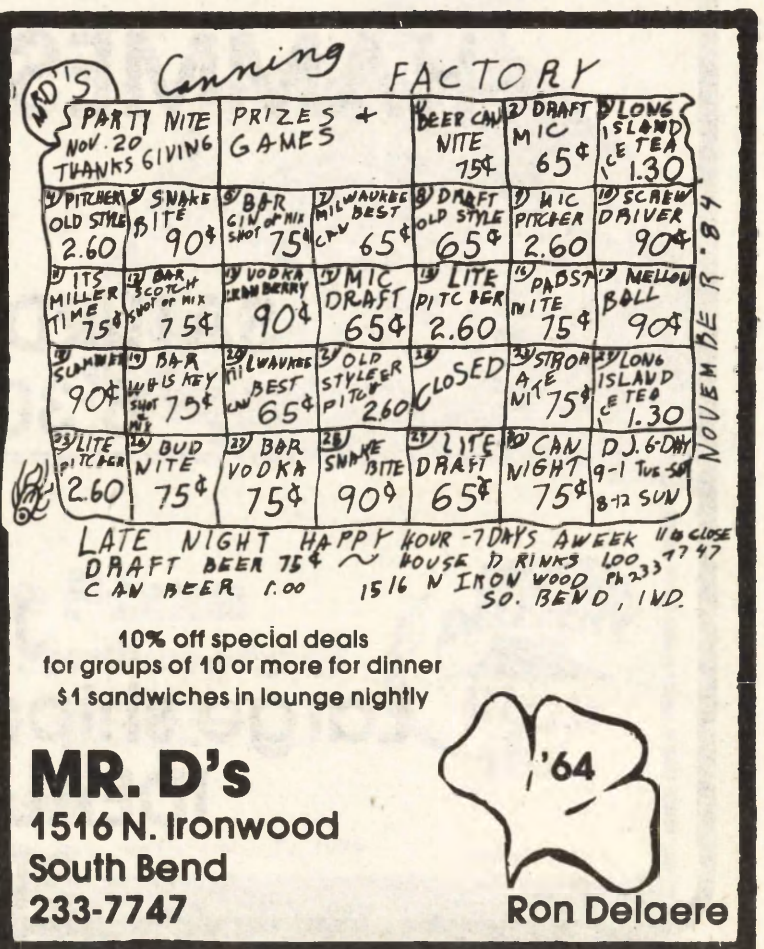 MR D'S Canning FACTORY
PARTY NITE
NOV. 20
THANKS GIVING
PRIZES +
GAMES
1) BEER CAN
NITE
75¢
2) DRAFT
MIC
65¢
3) LONG
ISLAND
ICE TEA
1.30
4) PITCHER
OLD STYLE
2.60
5) SNAKE
BITE
90¢
6) BAR
GIN or MIX
SHOT 75¢
7) MILWAUKEE
BEST
CAN 65¢
8) DRAFT
OLD STYLE
65¢
9) MIC
PITCHER
2.60
10) SCREW
DRIVER
90¢
11) ITS
MILLER
TIME
75¢
12) BAR
SCOTCH
SHOT or MIX
75¢
13) VODKA
CRANBERRY
90¢
14) MIC
DRAFT
65¢
15) LITE
PITCHER
2.60
16) PABST
NITE
75¢
17) MELLON
BALL
90¢
18) SLAMMER
90¢
19) BAR
WHISKEY
SHOT 75¢
MIX
20) MILWAUKEE
BEST
CAN 65¢
21) OLD
STYLE
PITCH
2.60
22)
CLOSED
23) STROH
A
NITE 75¢
24) LONG
ISLAND
ICE TEA
1.30
25) LITE
PITCHER
2.60
26) BUD
NITE
75¢
27) BAR
VODKA
75¢
28) SNAKE
BITE
90¢
29) LITE
DRAFT
65¢
30) CAN
NIGHT
75¢
D.J. 6-DAY
9-1 TUE-SAT
8-12 SUN
NOVEMBER '84
LATE NIGHT HAPPY HOUR - 7 DAYS A WEEK 11 to CLOSE
DRAFT BEER 75¢ ~ HOUSE DRINKS 1.00
CAN BEER 1.00 1516 N IRON WOOD Ph 233 7747
SO. BEND, IND.
10% off special deals
for groups of 10 or more for dinner
$1 sandwiches in lounge nightly
MR. D's
1516 N. Ironwood
South Bend
233-7747
'64
Ron Delaere